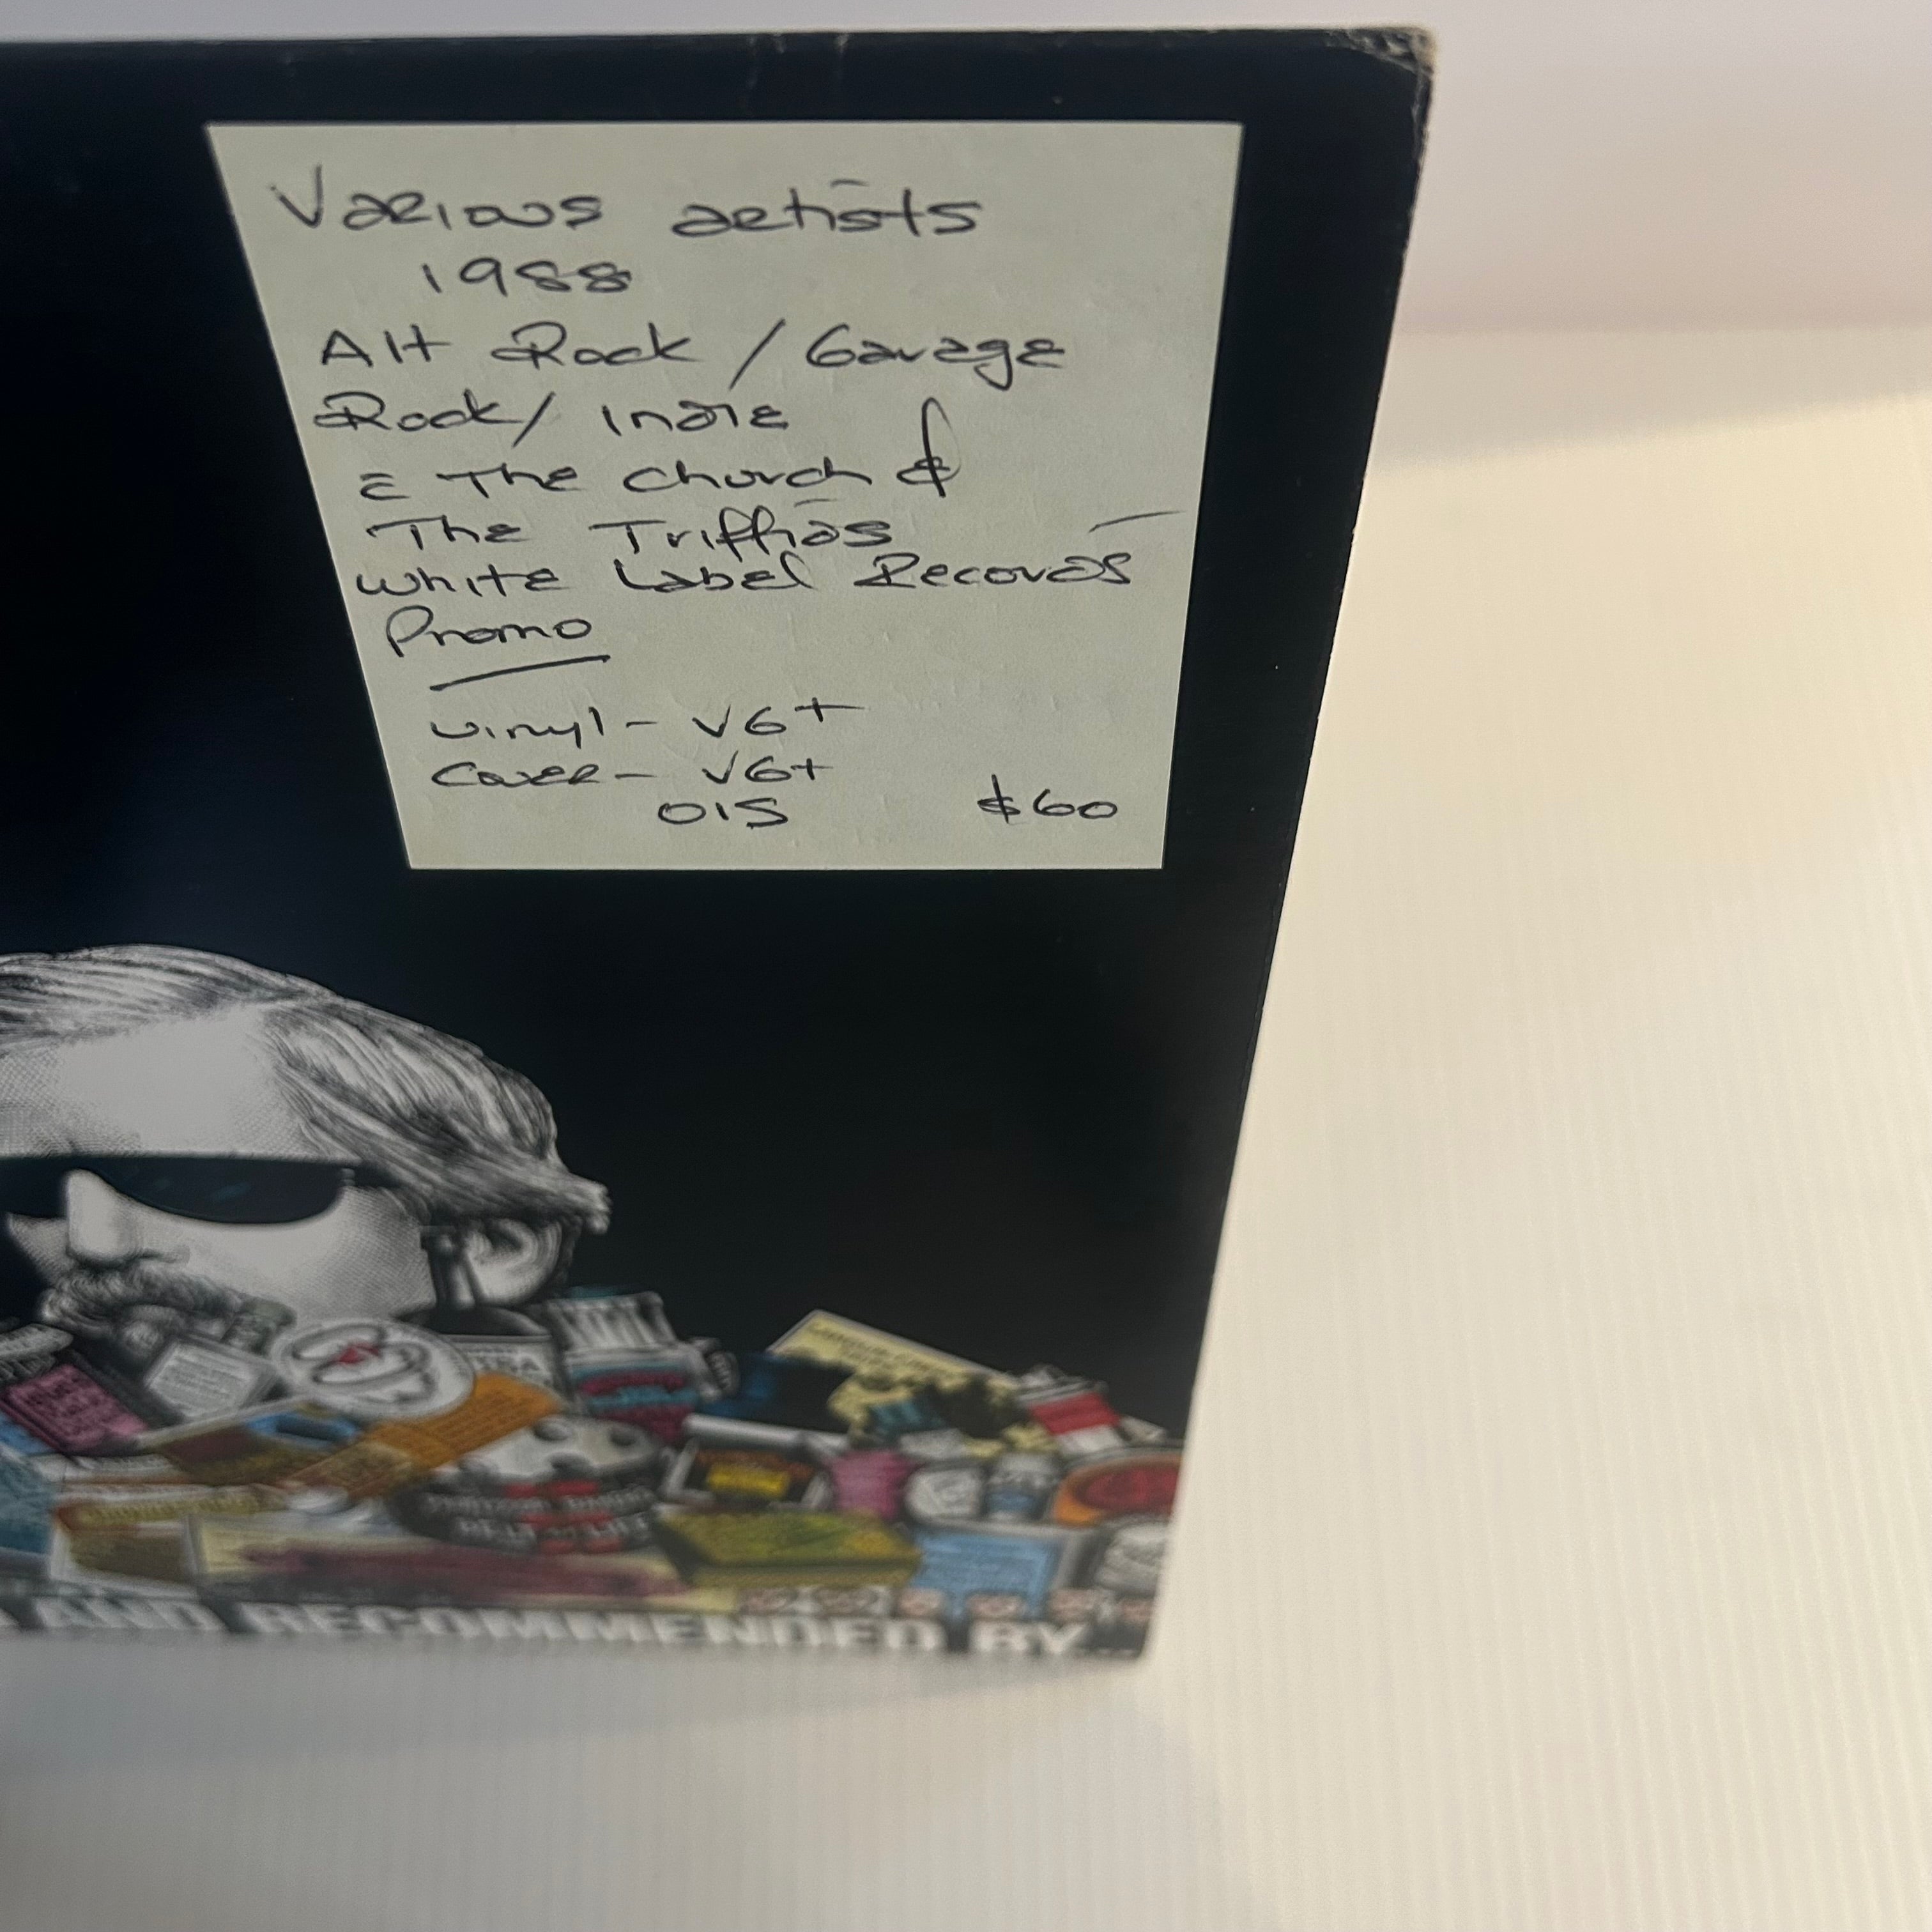 Various artists
1988
Alt Rock / Garage
Rock/ Indie
c̄ The Church &
The Triffids
White Label Records –
Promo
Vinyl - VG+
Cover - VG+
OIS $60
AND RECOMMENDED BY...